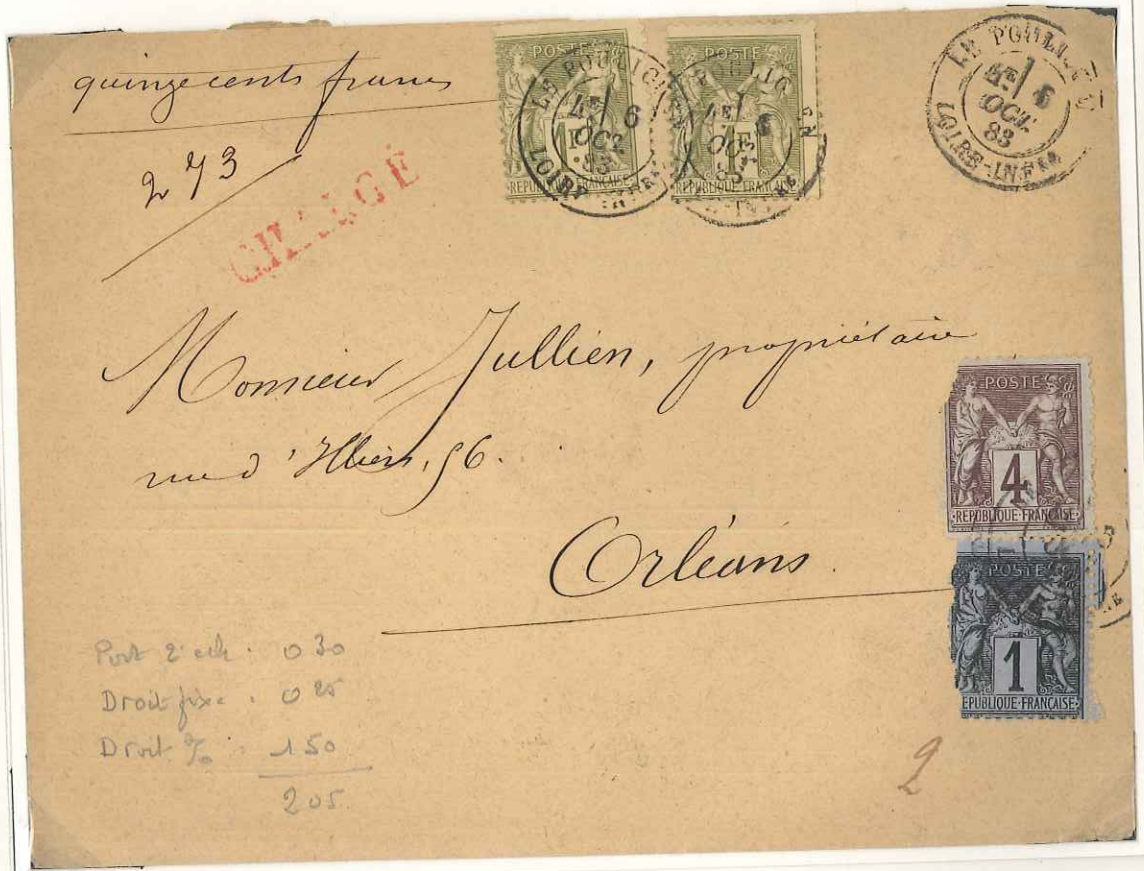 quinze cents francs
273
CHARGÉ
POSTE
1F
REPUBLIQUE FRANÇAISE
POSTE
1F
REPUBLIQUE FRANÇAISE
LE POULIGUEN
6
OCT
83
LOIRE
6
83
LE POULIGUEN
6
OCT
83
LOIRE-INFRE
Monsieur Jullien, propriétaire
rue d'Illiers, 56.
Orléans
POSTE
4
REPUBLIQUE FRANÇAISE
POSTE
1
EPUBLIQUE FRANÇAISE
Port 2e ech. 0 30
Droit fixe. 0 25
Droit % 1 50
2 05
2